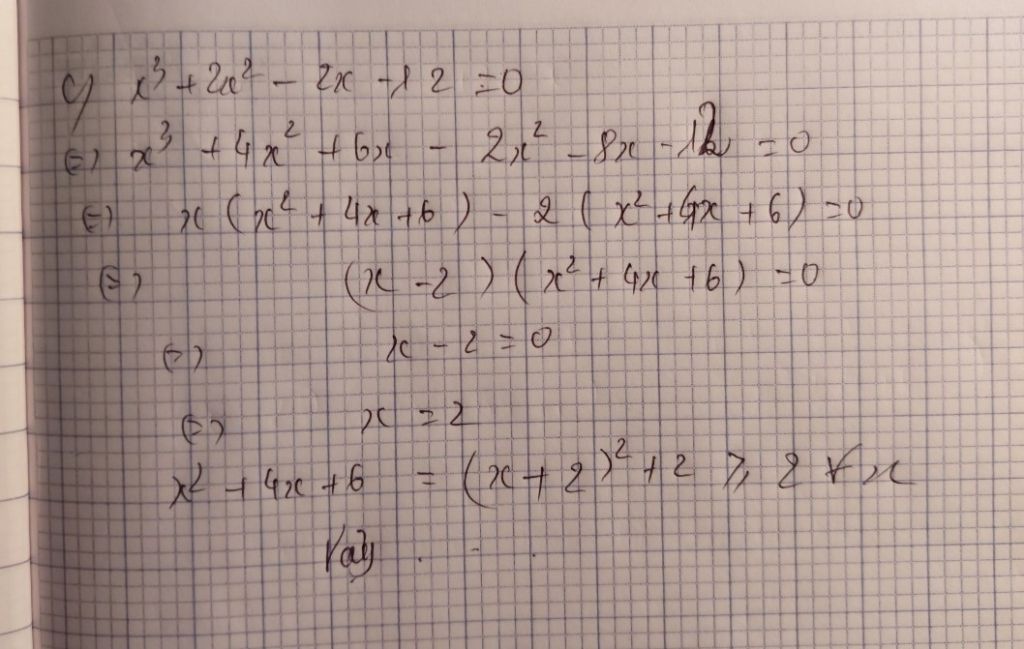 c) x³ + 2x² - 2x - 12 = 0
⇔ x³ + 4x² + 6x - 2x² - 8x - 12 = 0
⇔ x (x² + 4x + 6) - 2 (x² + 4x + 6) = 0
⇔ (x - 2) (x² + 4x + 6) = 0
⇔ x - 2 = 0
⇔ x = 2
x² + 4x + 6 = (x + 2)² + 2 ⩾ 2 ∀ x
Vậy . . .